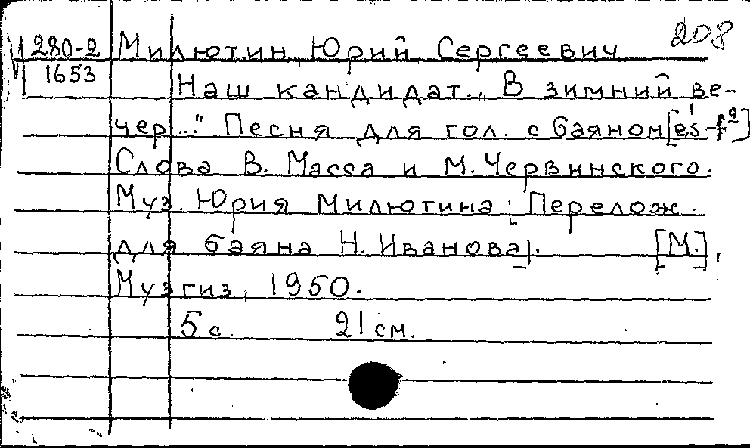 208
М 280-2 Милютин, Юрий Сергеевич
1653
Наш кандидат. „В зимний ве-
чер..." Песня для гол. с баяном [es¹-f²]
Слова В. Масса и М. Червинского.
Муз Юрия Милютина [Перелож.
для баяна Н. Иванова]. [М.],
Музгиз, 1950.
5 с. 21 см.